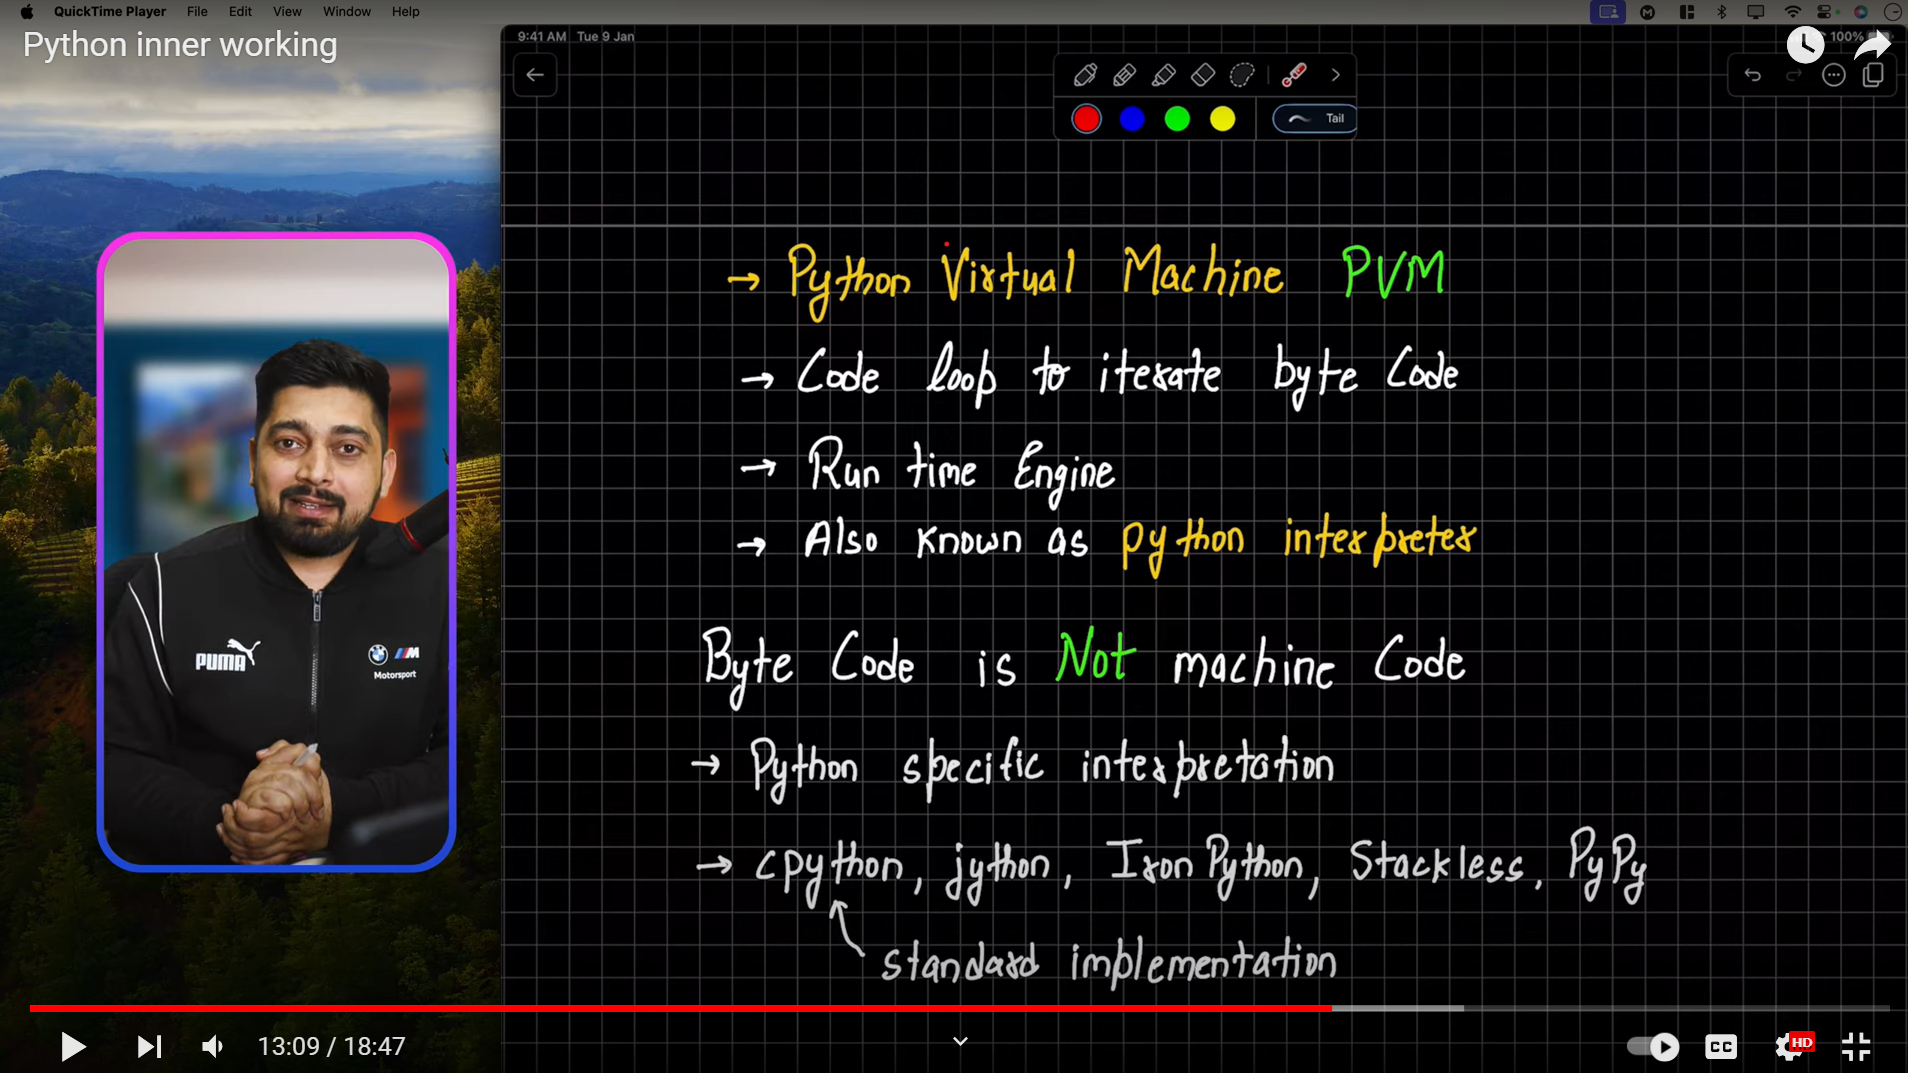 QuickTime Player File Edit View Window Help
Python inner working
9:41 AM Tue 9 Jan
100%
Tail
→ Python Virtual Machine PVM
→ Code loop to iterate byte Code
→ Run time Engine
→ Also known as python interpreter
Byte Code is Not machine Code
→ Python specific interpretation
→ cpython, jython, Iron Python, Stackless, PyPy
standard implementation
PUMA
M
Motorsport
13:09 / 18:47
CC
HD